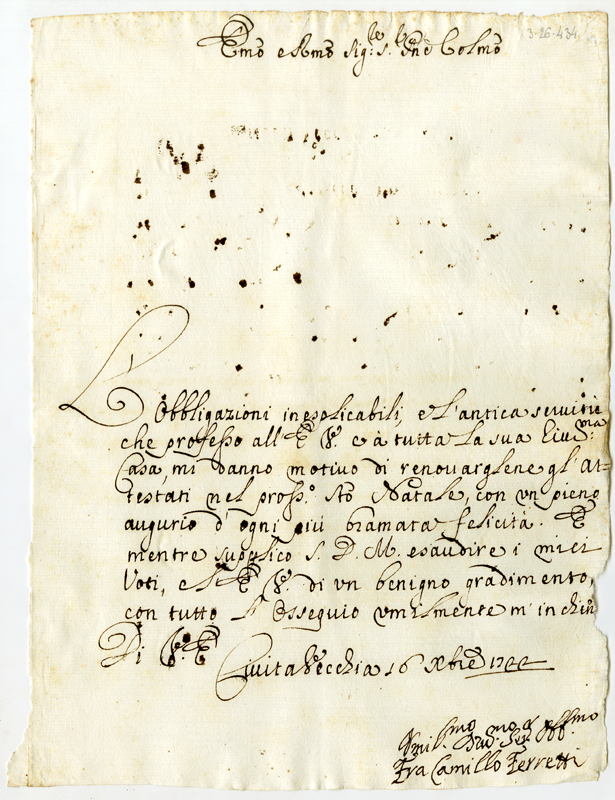 3-26-434
Emo e Rmo Sig:re S.r Pne Colmo
L'Obbligazioni inesplicabili, e l'antica servitù
che professo all' E V. e à tutta la sua Ecc.ma
Casa, mi danno motivo di renovarglene gl' at=
testati nel pross.o Sto Natale, con vn pieno
augurio d' ogni più bramata felicità. E
mentre supplico S. D. M. esaudire i miei
Voti, e l' E V. di vn benigno gradimento,
con tutto l' ossequio vmilmente m' inchin
Di V. E
CivitaVecchia 16 Xbre
Vmil.mo Obb.mo
Fra Camillo Ferretti